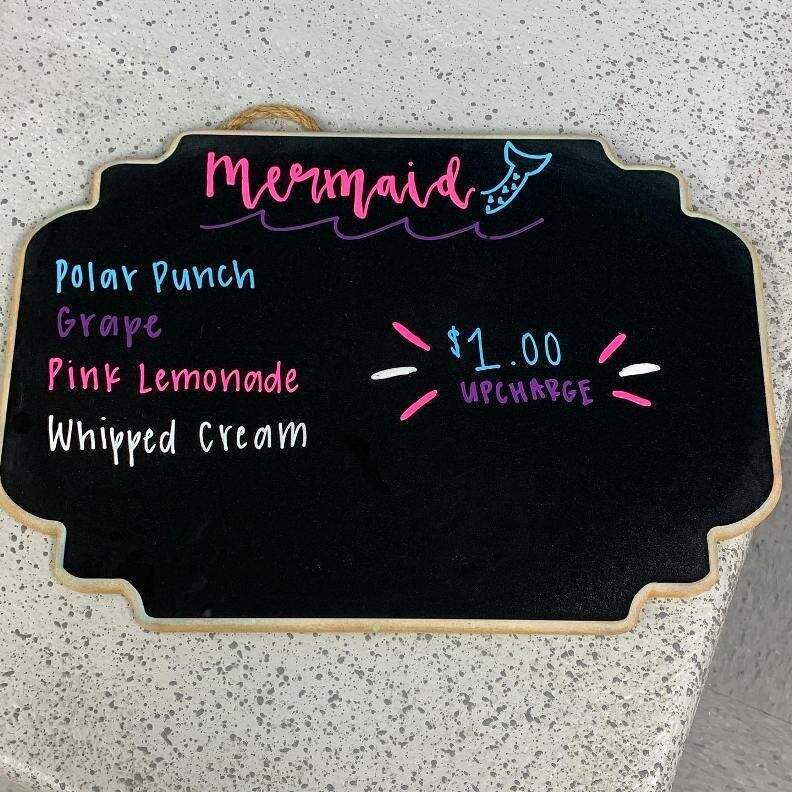 Mermaid
Polar Punch
Grape
Pink Lemonade
Whipped Cream
$1.00
UPCHARGE